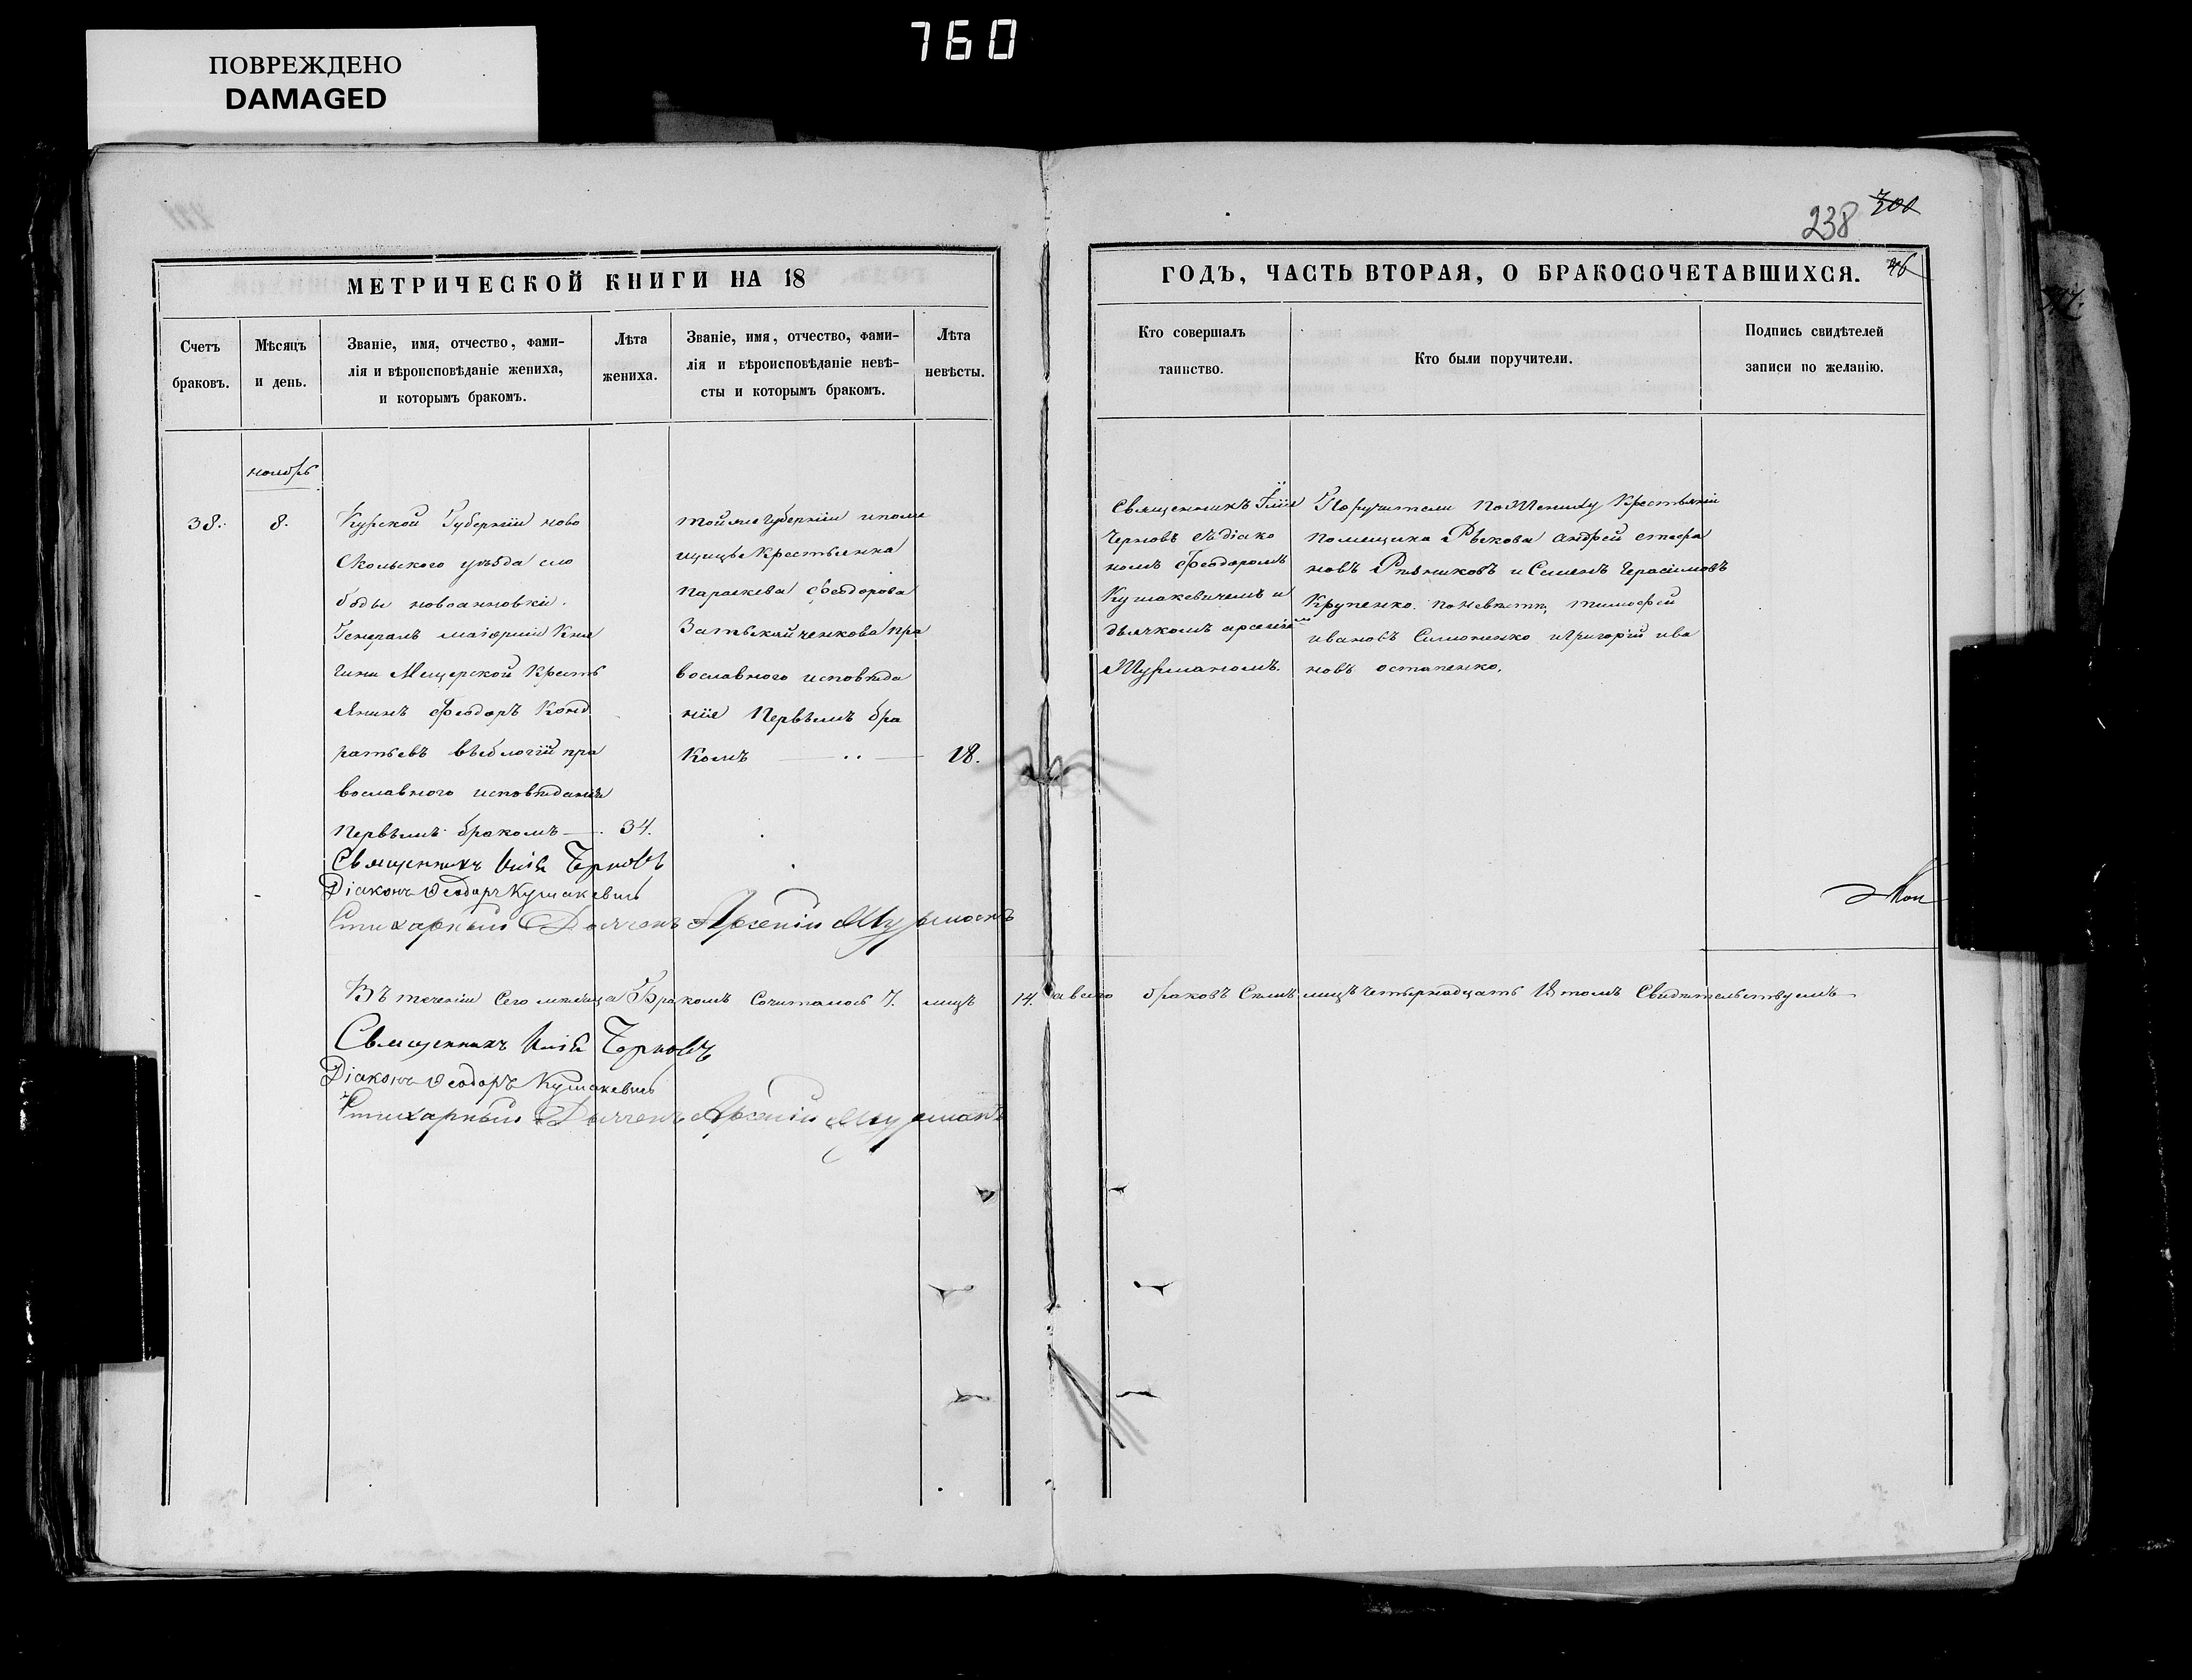 760
ПОВРЕЖДЕНО
DAMAGED
238 700
МЕТРИЧЕСКОЙ КНИГИ НА 18
ГОДЪ, ЧАСТЬ ВТОРАЯ, О БРАКОСОЧЕТАВШИХСЯ. 46
Счетъ
браковъ.
Мѣсяцъ
и день.
Званіе, имя, отчество, фами-
лія и вѣроисповѣданіе жениха,
и которымъ бракомъ.
Лѣта
жениха.
Званіе, имя, отчество, фами-
лія и вѣроисповѣданіе невѣ-
сты и которымъ бракомъ.
Лѣта
невѣсты.
Кто совершалъ
таинство.
Кто были поручители.
Подпись свидѣтелей
записи по желанію.
ноябрь
38. 8.
Курской Губерніи ново
Оскольскаго уѣзда сло
боды новоанновки.
Генералъ маіорши Кня
гини Мещерской Кресть
янинъ Феодоръ Конд
ратьевъ пра
вославного исповѣданія
Первымъ бракомъ — 34.
тойже губерніи ипоме
щицы Крестьянка
параскева Феодорова
пра
вославного исповѣда
нія Первымъ бра
комъ — 18.
Священникъ Ілія
Черновъ съ діако
номъ Феодоромъ
Кушакевичемъ и
дьячкомъ арсеніемъ
Мурманомъ.
Поручители По Жениху Крестьяни
помещика Рыкова андрей стефа
новъ и Семенъ Герасимовъ
Крупенко. По Невѣстѣ, тимофей
ивановъ Симоненко игригорій ива
новъ остапенко.
Священникъ Илія Черновъ
Діаконъ Феодоръ Кушакевичъ
Стихарный Дьячекъ Арсеній Мурманъ
Въ теченіи Сего месяца Бракомъ Сочиталось 7. лицъ 14. авсего браковъ Семь лицъ четырнадцать Втомъ Свидѣтельствуемъ
Священникъ Илія Черновъ
Діаконъ Феодоръ Кушакевичъ
Стихарный Дьячекъ Арсеній Мурманъ